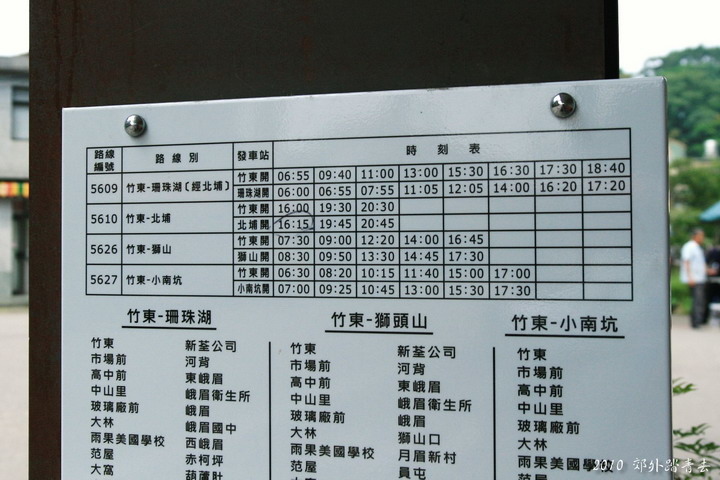 路線編號 路線別 發車站 時刻表
5609 竹東-珊珠湖(經北埔) 竹東開 06:55 09:40 11:00 13:00 15:30 16:30 17:30 18:40
珊珠湖開 06:00 06:55 07:55 11:05 12:05 14:00 16:20 17:20
5610 竹東-北埔 竹東開 16:00 19:30 20:30
北埔開 16:15 19:45 20:45
5626 竹東-獅山 竹東開 07:30 09:00 12:20 14:00 16:45
獅山開 08:30 09:50 13:30 14:45 17:30
5627 竹東-小南坑 竹東開 06:30 08:20 10:15 11:40 15:00 17:00
小南坑開 07:00 09:25 10:45 13:00 15:30 17:30
竹東-珊珠湖
竹東 新荃公司
市場前 河背
高中前 東峨眉
中山里 峨眉衛生所
玻璃廠前 峨眉
大林 峨眉國中
雨果美國學校 西峨眉
范屋 赤柯坪
大窩 葫蘆肚
竹東-獅頭山
竹東 新荃公司
市場前 河背
高中前 東峨眉
中山里 峨眉衛生所
玻璃廠前 峨眉
大林 獅山口
雨果美國學校 月眉新村
范屋 員屯
竹東-小南坑
竹東
市場前
高中前
中山里
玻璃廠前
大林
雨果美國學校
范屋
2010 郊外踏青去